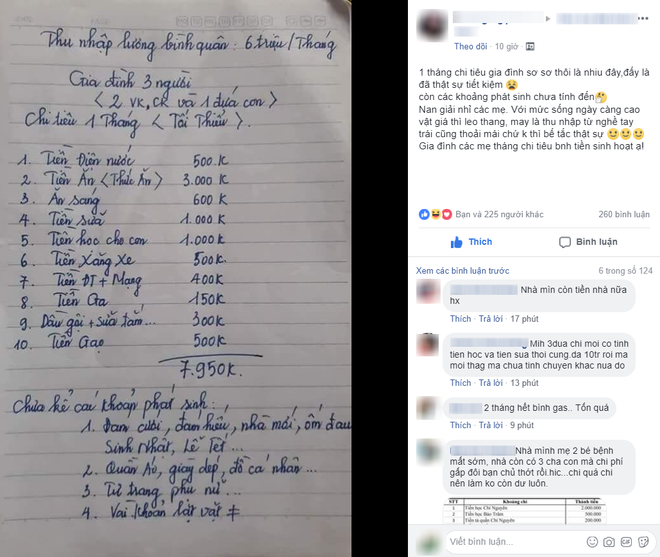 Thu nhập lương bình quân : 6 triệu/Tháng
Gia đình 3 người
< 2 VK, CK và 1 đứa con >
Chi tiêu 1 Tháng < Tối Thiểu >.
1. Tiền Điện nước 500K
2. Tiền Ăn <Thức Ăn> 3.000K
3. Ăn sáng 600K
4. Tiền sữa 1.000K
5. Tiền học cho con 1.000K
6. Tiền xăng xe 500K.
7. Tiền ĐT + Mạng 400K
8. Tiền Ga 150K
9. Dầu gội + sữa tắm... 300K
10. Tiền Gạo 500K
7.950K.
Chưa kể các khoản phát sinh :
1. Đám cưới, đám hiếu, nhà mới, ốm đau
Sinh Nhật, Lễ Tết ...
2. Quần Áo, giày dép, đồ cá nhân ...
3. Tư trang phụ nữ ...
4. Vài khoản lặt vặt ≠
Theo dõi · 10 giờ ·
1 tháng chi tiêu gia đình sơ sơ thôi là nhiu đây,đấy là
đã thật sự tiết kiệm 😫
còn các khoảng phát sinh chưa tính đến🤔
Nan giải nhỉ các mẹ. Với mức sống ngày càng cao
vật giá thì leo thang, may là thu nhập từ nghề tay
trái cũng thoải mái chứ k thì bế tắc thật sự 😄😄😄
Gia đình các mẹ tháng chi tiêu bnh tiền sinh hoạt ạ!
Bạn và 225 người khác 260 bình luận
Thích Bình luận
Xem các bình luận trước 6 trong số 124
Nhà mìn còn tiền nhà nữa
hx
Thích · Trả lời · 17 phút
Mih 3dua chi moi co tinh
tien hoc va tien sua thoi cung.da 10tr roi ma
moi thag ma chua tinh chuyen khac nua do
Thích · Trả lời · 13 phút
2 tháng hết bình gas.. Tốn quá
Thích · Trả lời · 9 phút
Nhà mình mẹ 2 bé bệnh
mất sớm, nhà còn có 3 cha con mà chi phí
gấp đôi bạn chủ thớt rồi.hic...chi quá chi
nên làm ko còn dư luôn.
STT Khoảng chi Thành tiền
1 Tiền học Chí Nguyên 2.000.000
2 Tiền học Bảo Trâm 500.000
3 Tiền tã quần Chí Nguyên 200.000
Viết bình luận...